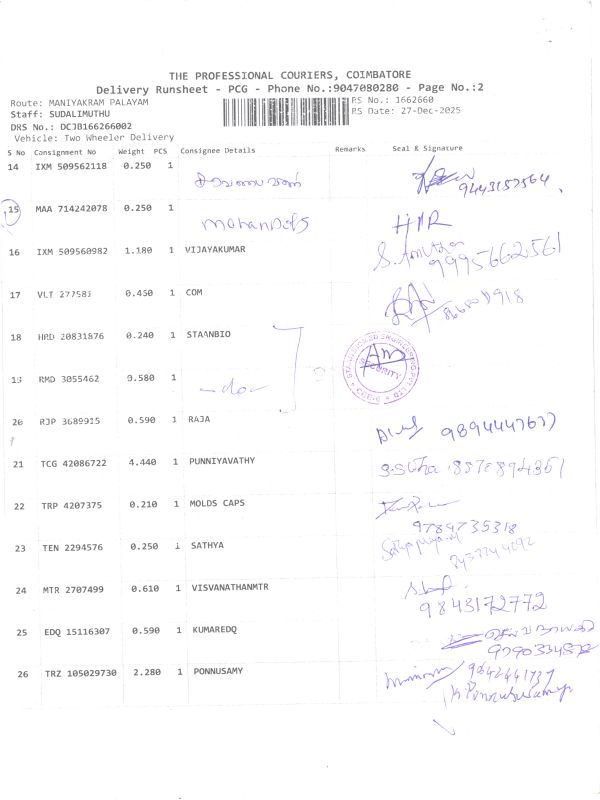 THE PROFESSIONAL COURIERS, COIMBATORE
Delivery Runsheet - PCG - Phone No.:9047080280 - Page No.:2
Route: MANIYAKRAM PALAYAM RS No.: 1662660
Staff: SUDALIMUTHU RS Date: 27-Dec-2025
DRS No.: DCJB166266002
Vehicle: Two Wheeler Delivery
S No Consignment No Weight PCS Consignee Details Remarks Seal & Signature
14 IXM 509562118 0.250 1 9443157564
15 MAA 714242078 0.250 1 HAR
16 IXM 509560982 1.180 1 VIJAYAKUMAR 9995662561
17 VLT 277583 0.450 1 COM
18 HRD 20831876 0.240 1 STAANBIO
19 RMD 3055462 0.580 1 -do- SECURITY
20 RJP 3689915 0.590 1 RAJA 9894447677
21 TCG 42086722 4.440 1 PUNNIYAVATHY
22 TRP 4207375 0.210 1 MOLDS CAPS
9789735318
23 TEN 2294576 0.250 1 SATHYA
24 MTR 2707499 0.610 1 VISVANATHANMTR
9843172772
25 EDQ 15116307 0.590 1 KUMAREDQ
26 TRZ 105029730 2.280 1 PONNUSAMY 9842441737